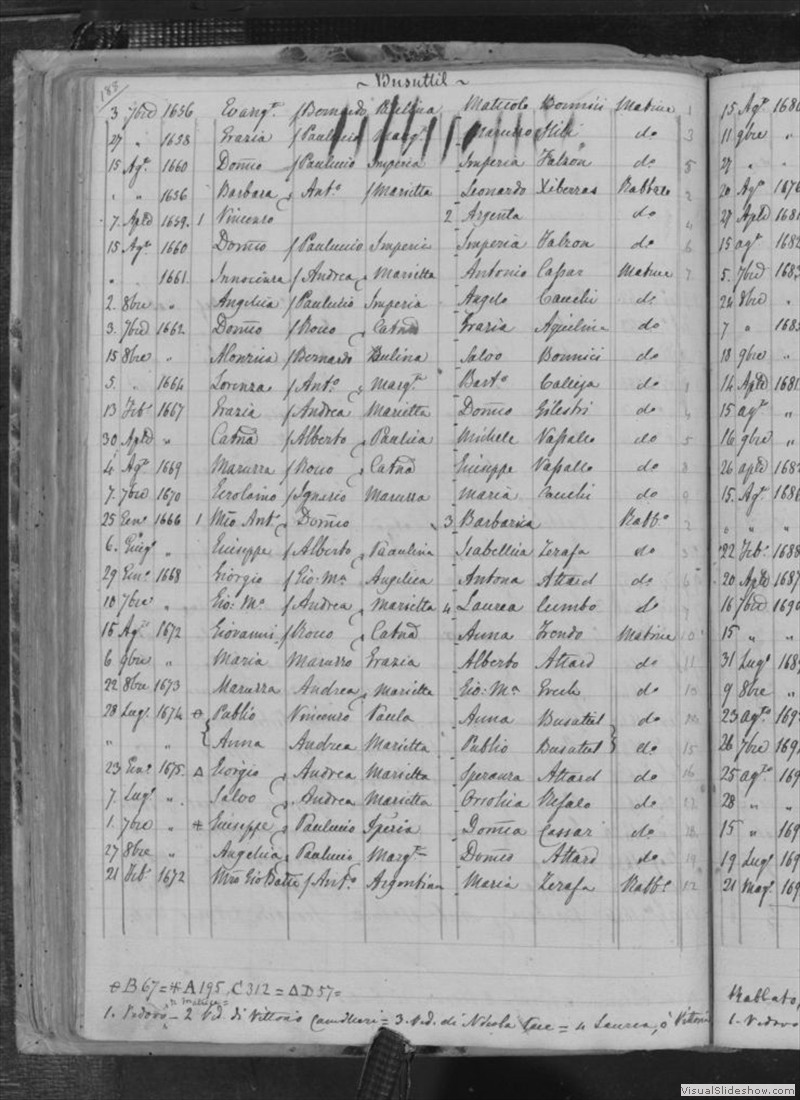 188
~ Busuttil ~
3 7bre 1656 Evangta f Bernardo Paulina Matteolo Bonnici Matrice 1
27 " 1658 Grazia f Paulucio Margta Mamuso do 3
15 Ago 1660 Domco f Paulucio Imperia Imperia Falzon do 5
" " 1656 Barbara Anto f Marietta Leonardo Xiberras Rabbato 2
7 Aple 1659. 1 Vincenzo 2 Argenta do 4
15 Ago 1660 Domco f Paulucio Imperia Imperia Falzon do 6
" 1661. Innocenza f Andrea Marietta Antonio Cassar Matrice 7
2. 8bre " Angelica f Paulucio Imperia Angelo Cauchi do
3. 7bre 1662 Domco f Rocco Catna Grazia Aquilina do
15 8bre " f Bernardo Paulina Salvo Bonnici do
5. " 1664 Lorenza f Anto Margta Barto Calleja do 1
13 Feb. 1667 Grazia f Andrea Marietta Domco do 4
30 Aple " Catna f Alberto Paulica Michele Vassallo do 5
4 Ago 1669 Maruzza f Rocco Catna Giuseppe Vassallo do 8
7. 7bre 1670 Gerolamo f Ignazio Maruzza Maria Cauchi do 9
25 Gen. 1666 1 Mro Anto Domco 3 Barbarica Rabbo 2
6. Giugo " Giuseppe f Alberto Paaulina Isabellica Zerafa do 3
29 Gen. 1668 Giorgio f Gio: Ma Angelica Antona Attard do 6
10 7bre " Gio: Ma f Andrea Marietta 4 Laurea Cumbo do 7
15 Ago 1672 Giovanni f Rocco Catna Anna Zondo Matrice 10
6 9bre " Maria Maruzzo Grazia Alberto Attard do 11
22 8bre 1673 Maruzza Andrea Marietta Gio: Ma Grech do 13
28 Lugo 1674 Publio Vincenzo Paula Anna Busuttil do 14
" " Anna Andrea Marietta Publio Busuttil do 15
23 Gen. 1675. Δ Giorgio Andrea Marietta Speranza Attard do 16
7 Lugo " Salvo Andrea Marietta Orsolica Refalo do 17
1. 7bre " Giuseppe Paulucio Speria Domca Cassar do 18
27 8bre " Angelica Paulucio Margta Domco Attard do 19
21 Feb. 1672 Mro Gio Batta f Anto Maria Zerafa Rabbo 12
B 67 = A 195, C 312 = Δ D 57 =
1. Vedovo - 2 Ved. di Vittorio = 3. Ved. di Nicola = 4 Laurea, o Vittoria
15 Ago 1680
11 9bre "
27 " "
20 Ago 1676
27 Aple 1681
15 ago 1682
5. 7bre 1683
24 8bre "
7 " 1685
18 9bre "
14 Aple 1681
15 ago "
16 9bre "
26 aple 1682
15. Ago 1686
" " "
22 Feb. 1688
20 Aple 1687
16 7bre 1690
15 " "
31 Lugo 168
9 8bre "
23 ago 169
26 7bre 169
25 ago 169
28 " "
15 " 169
19 Lugo 169
21 Mago 169
Rabbato,
1. Vedovo
VisualSlideshow.com